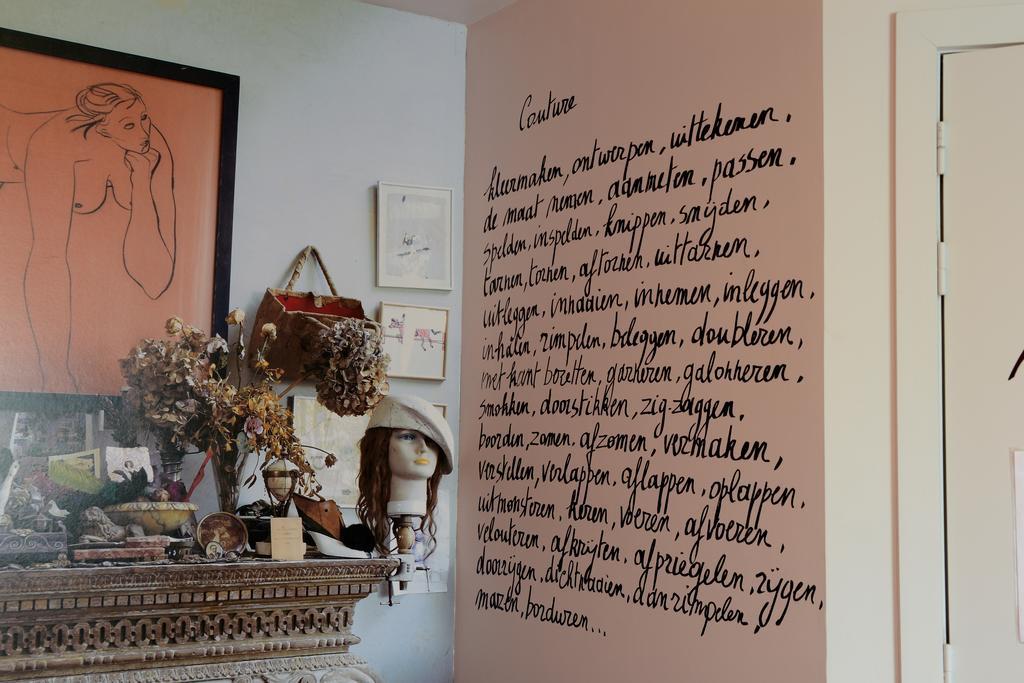 Couture
kleermaken, ontwerpen, uittekenen,
de maat nemen, aanmeten, passen,
spelden, inspelden, knippen, snijden,
tarnen, tornen, aftornen, uittarnen,
uitleggen, innaaien, innemen, inleggen,
inhalen, rimpelen, beleggen, doubleren,
met kant bezetten, garneren, galonneren,
smokken, doorstikken, zig-zaggen,
boorden, zomen, afzomen, vermaken,
verstellen, verlappen, aflappen, oplappen,
uitmonsteren, keren, voeren, afvoeren,
velouteren, afkrijten, afpriegelen, rijgen,
doorrijgen, dichtnaaien, aanrimpelen,
mazen, borduren...